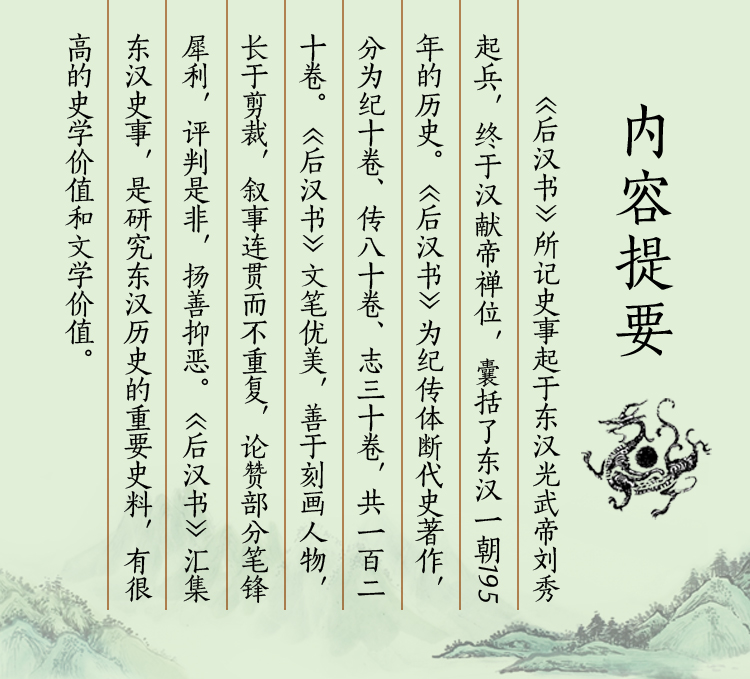 内容提要
《后汉书》所记史事起于东汉光武帝刘秀
起兵，终于汉献帝禅位，囊括了东汉一朝195
年的历史。《后汉书》为纪传体断代史著作，
分为纪十卷、传八十卷、志三十卷，共一百二
十卷。《后汉书》文笔优美，善于刻画人物，
长于剪裁，叙事连贯而不重复，论赞部分笔锋
犀利，评判是非，扬善抑恶。《后汉书》汇集
东汉史事，是研究东汉历史的重要史料，有很
高的史学价值和文学价值。